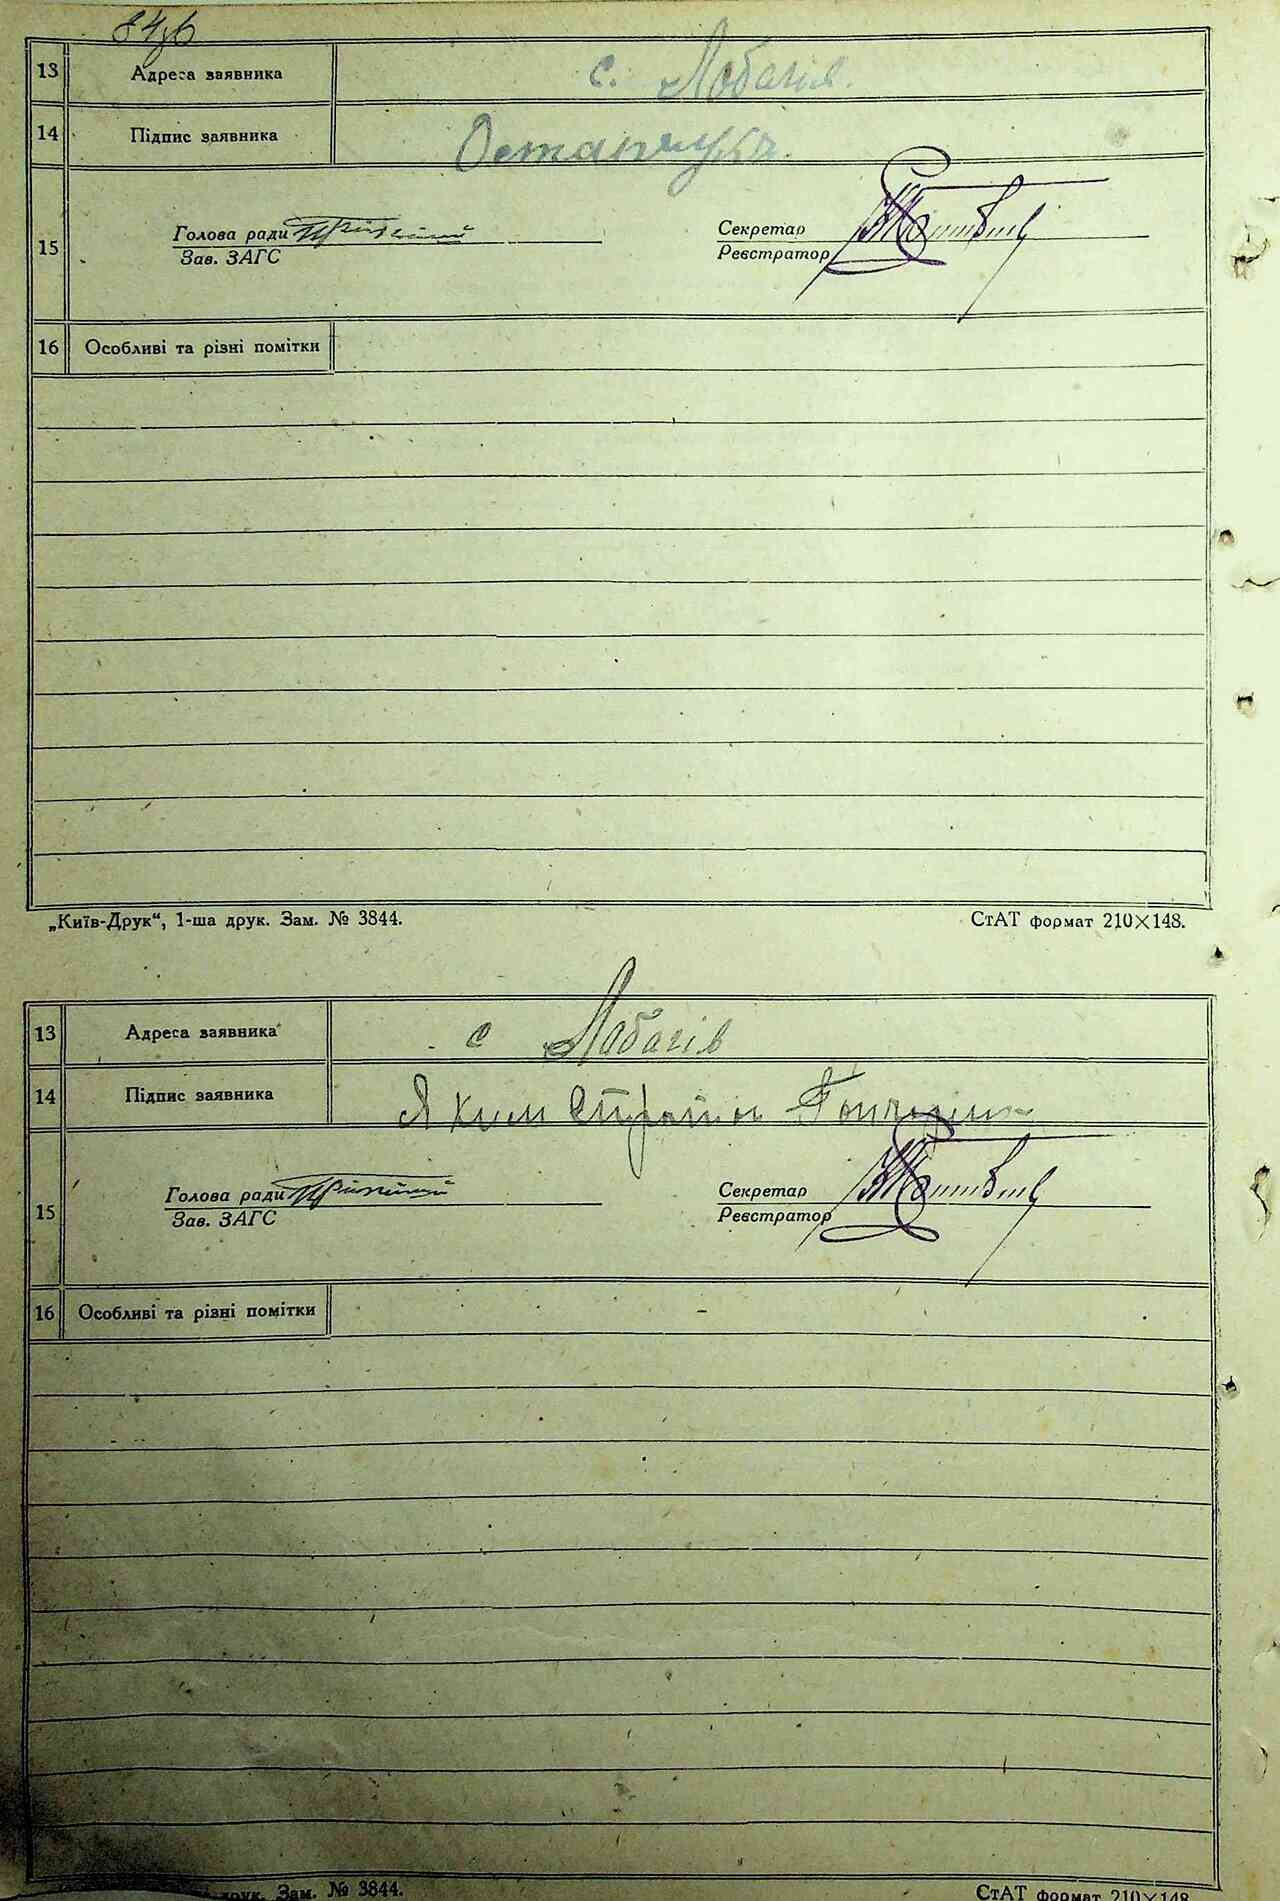 84зв
13 Адреса заявника с. Лобачів
14 Підпис заявника Остапчук
15 Голова ради Секретар
Зав. ЗАГС Реєстратор
16 Особливі та різні помітки
„Київ-Друк“, 1-ша друк. Зам. № 3844. СтАТ формат 210×148.
13 Адреса заявника с Лобачів
14 Підпис заявника Яким
15 Голова ради Секретар
Зав. ЗАГС Реєстратор
16 Особливі та різні помітки
друк. Зам. № 3844. СтАТ формат 210×148